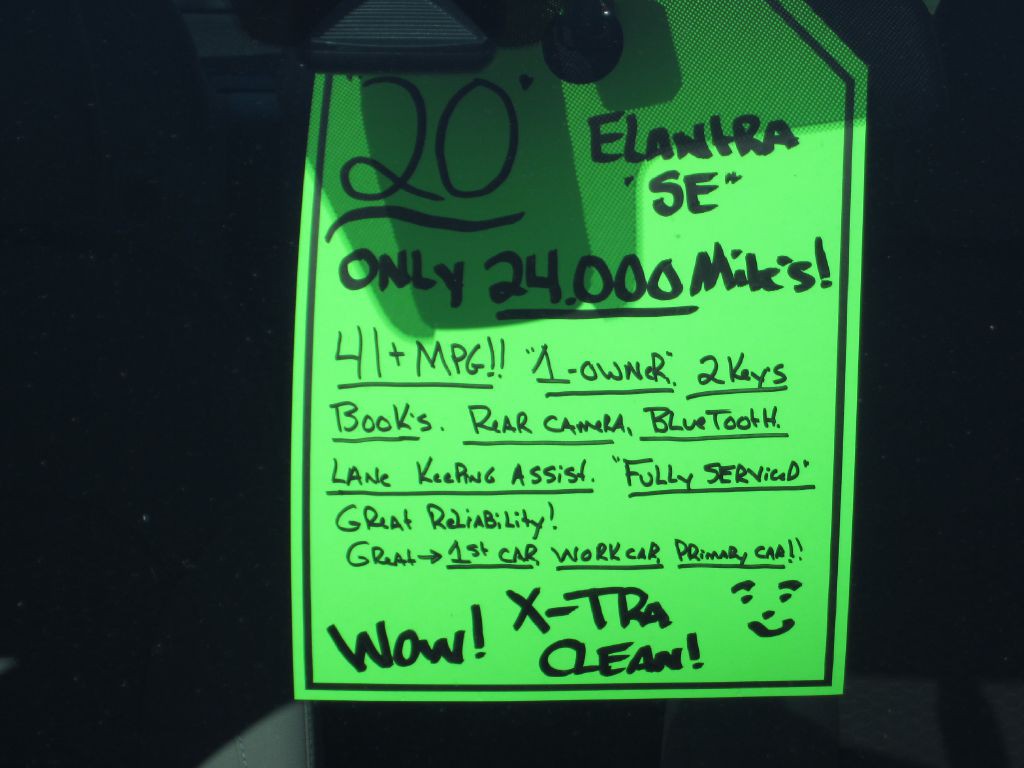 '20'
ELANtRA
"SE"
ONLY 24.000 Mile's!
41+ MPG!! "1-OWNeR". 2 Keys
Book's. ReAR CAMeRA, BLueTootH.
LANe KeePiNG ASSiSt. "FuLLy SERViceD"
GReat ReLiABiLity!
GReat → 1St CAR, WORK CAR, PRiMARy CAR!!
WOW! X-TRa
CLEAN!